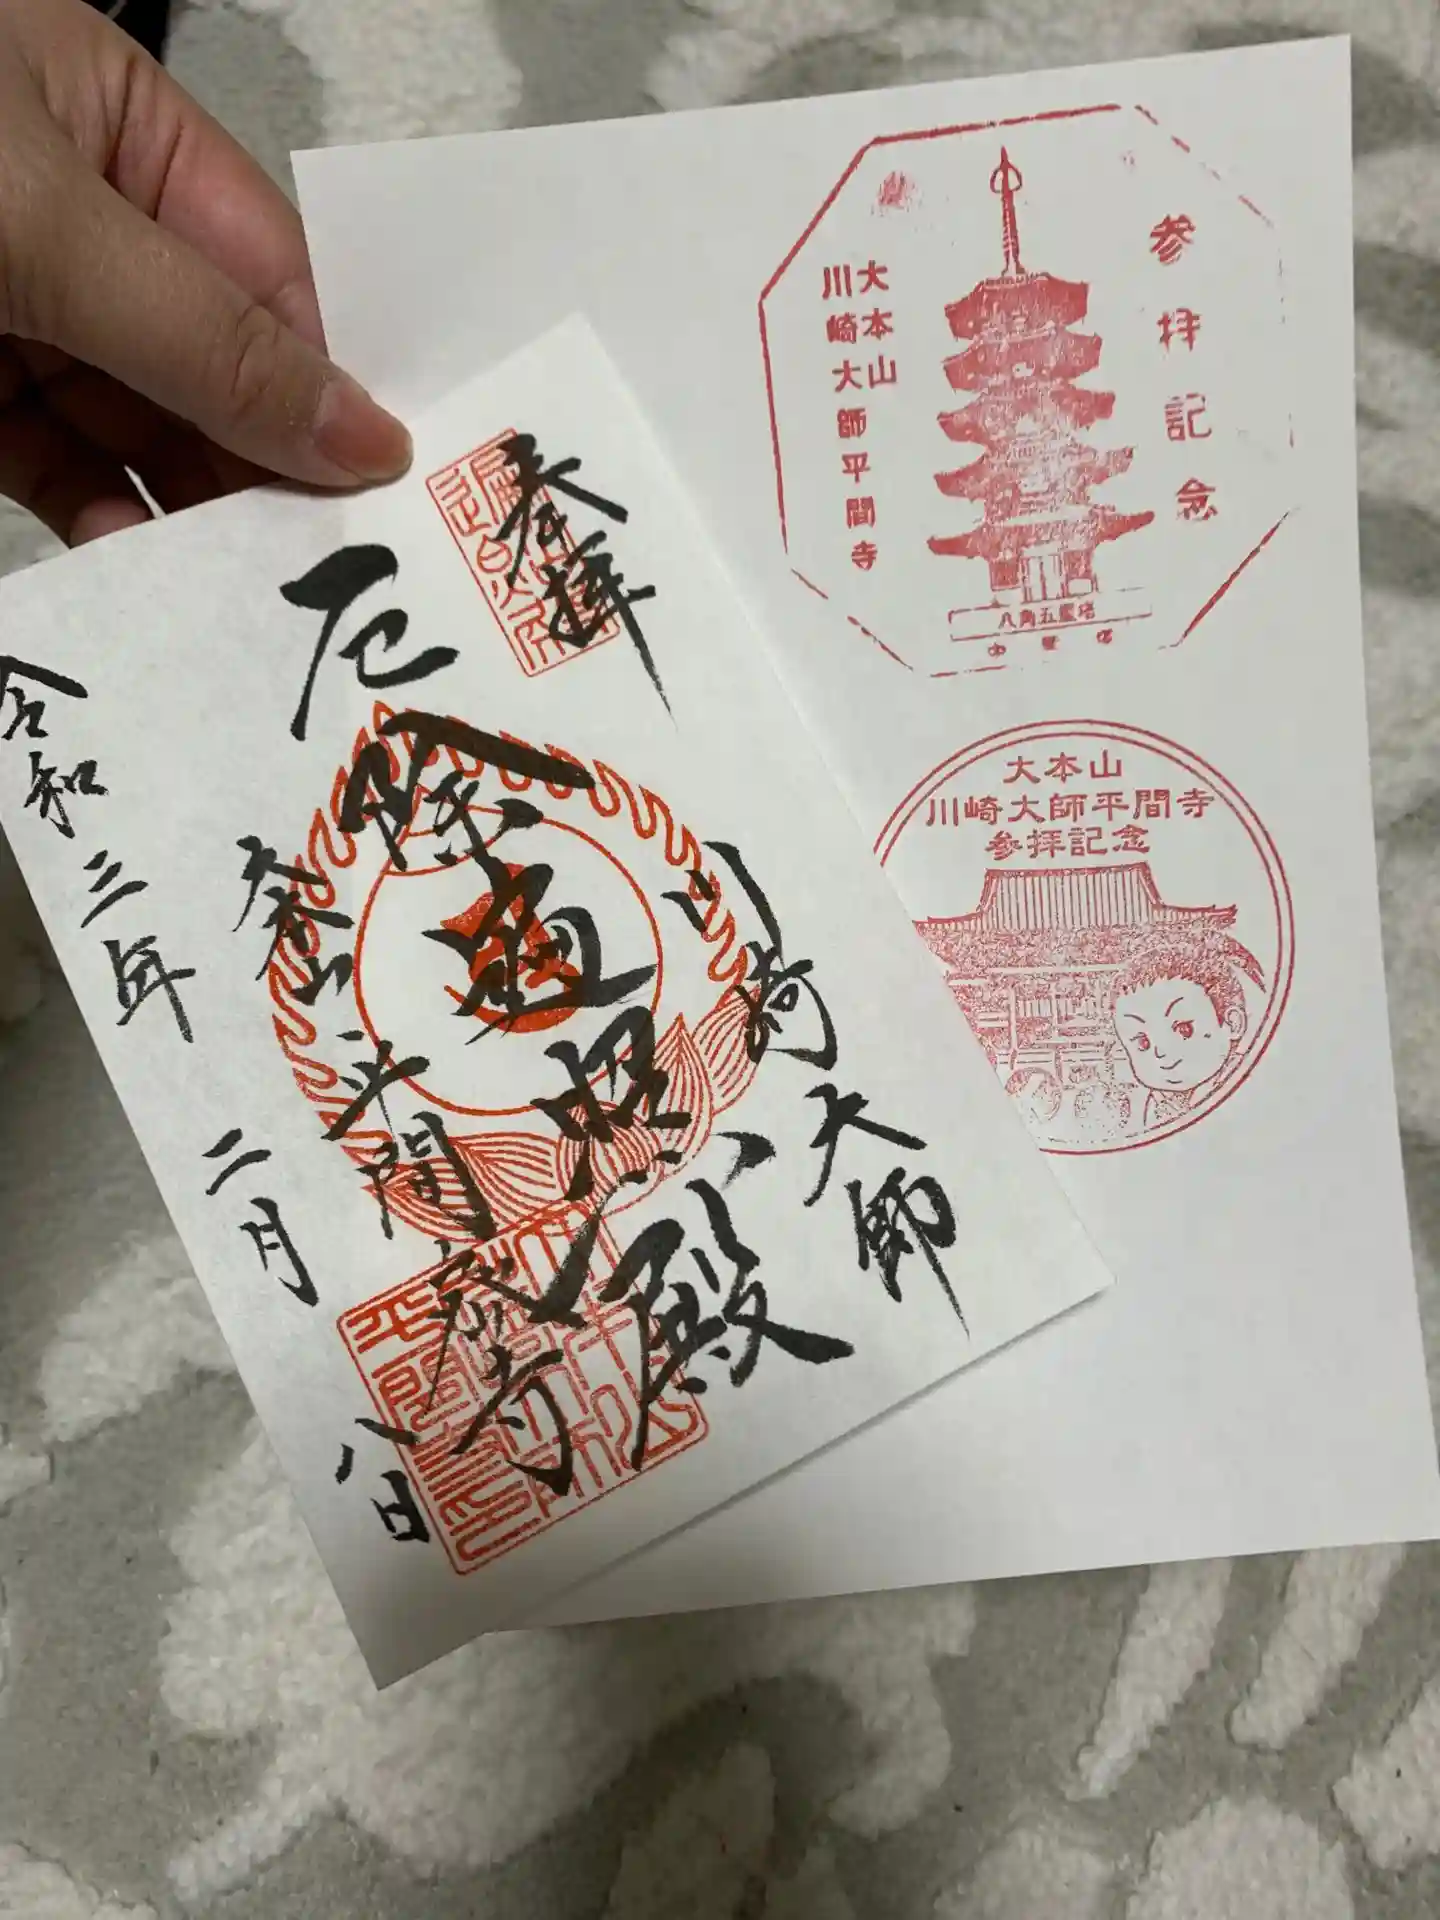 参拝記念
大本山
川崎大師平間寺
八角五重塔
中 書 塔
大本山
川崎大師平間寺
参拝記念
奉拝
川崎大師
厄除遍照殿
大本山
平間寺
令和三年 二月 八日